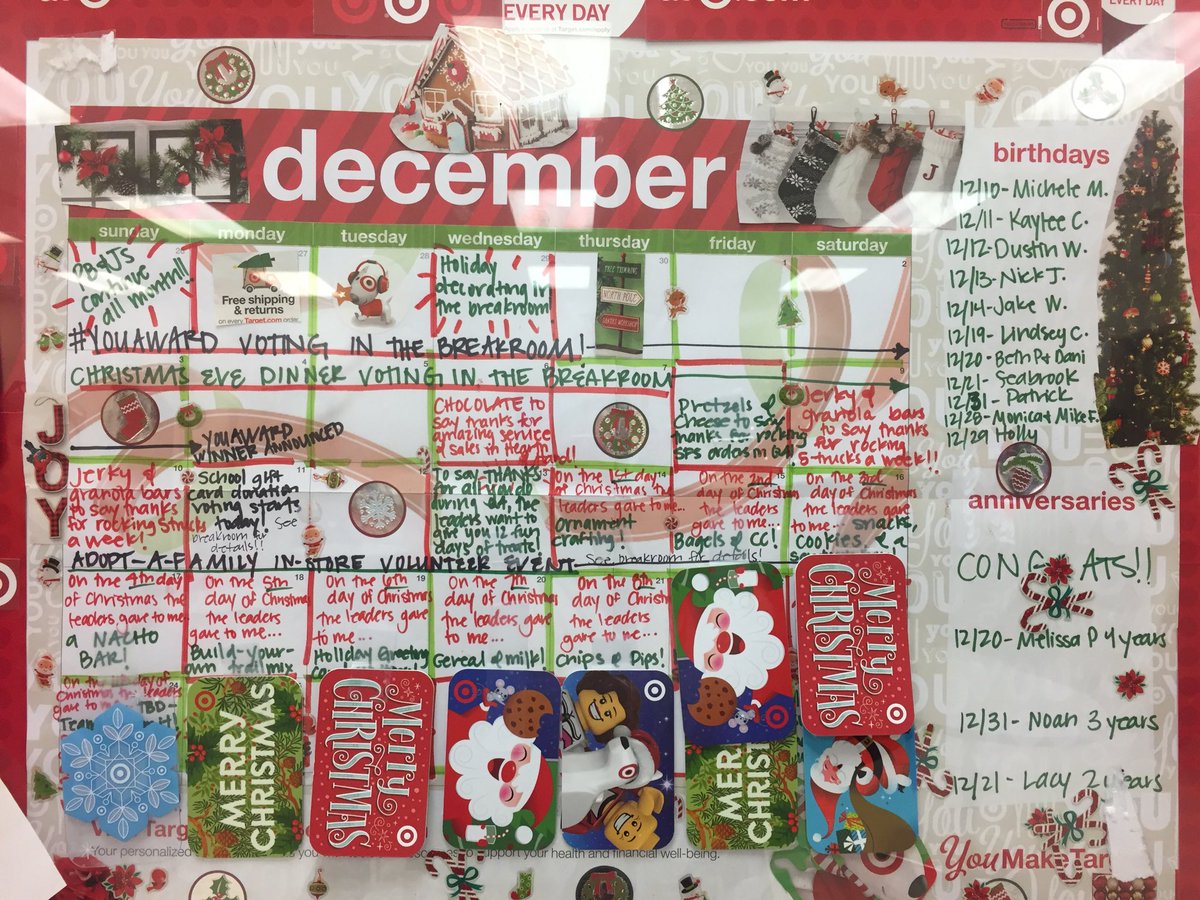 EVERY DAY
december
sunday
monday
tuesday
wednesday
thursday
friday
saturday
PB & J'S
continue
all month!!
27
Free shipping
& returns
on every Target.com order.
28
29
Holiday
decorating in
the breakroom
30
TREE TRIMMING
NORTH POLE
SANTA'S WORKSHOP
1
2
#YOUAWARD VOTING IN THE BREAKROOM!
CHRISTMAS EVE DINNER VOTING IN THE BREAKROOM
9
YOUAWARD
WINNER ANNOUNCED
CHOCOLATE to
say thanks for
amazing service
& sales in
Pretzels &
Cheese to say
thanks for rocking
SFS orders in
Jerky &
granola bars
to say thanks
for rocking
5-trucks a week!!
10
Jerky &
granola bars
to say thanks
for rocking 5 trucks
a week!
11
School gift
card donation
voting starts
today! see
breakroom for
details!!
To say THANKS
for all you do
during Q4, the
leaders want to
give you 12
days of treats!
14
On the 1st day
of Christmas the
leaders gave to me...
ornament
crafting!
15
On the 2nd
day of Christmas
the leaders
gave to me...
Bagels & CC!
16
On the 3rd
day of Christmas
the leaders gave
to me... snacks,
cookies, & a
ADOPT-A-FAMILY IN-STORE VOLUNTEER EVENT
See breakroom for details!
On the 4th day
of Christmas the
leaders gave to me
a NACHO
BAR!
18
On the 5th
day of Christmas
the leaders
gave to me...
Build-your-
own trail mix
19
On the 6th
day of Christmas
the leaders gave
to me...
Holiday Greeting
20
On the 7th
day of Christmas
the leaders
gave to me...
Cereal & milk!
21
On the 8th
day of Christmas
the leaders
gave to me...
Chips & Dips!
24
Christmas the leaders
gave to me TBD-
MERRY
CHRISTMAS
Merry
CHRISTMAS
Merry
CHRISTMAS
Your personalized
to support your health and financial well-being.
JOY
birthdays
12/10 - Michele M.
12/11 - Kaylee C.
12/12 - Dustin W.
12/13 - Nick J.
12/14 - Jake W.
12/19 - Lindsey C.
12/20 - Beth P & Dani
12/21 - Seabrook
12/31 - Patrick
12/28 - Monica & Mike F.
12/29 Holly
anniversaries
12/20 - Melissa P 4 years
12/31 - Noah 3 years
12/21 - Lacy 2 years
YouMakeTar